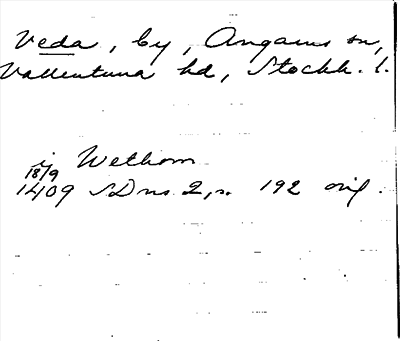 Veda, by, Angarns sn,
Vallentuna hd, Stockh. l.
i Wethom
18/9
1409 SD ns 2, s. 192 orig.